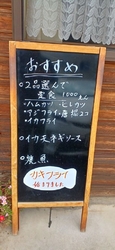 おすすめ
○2品選んで
定食 1000えん
・ハムカツ・ヒレカツ
・アジフライ・唐揚2コ
・イカフライ
○イカ玉ネギソース
○焼魚
カキフライ
始めました